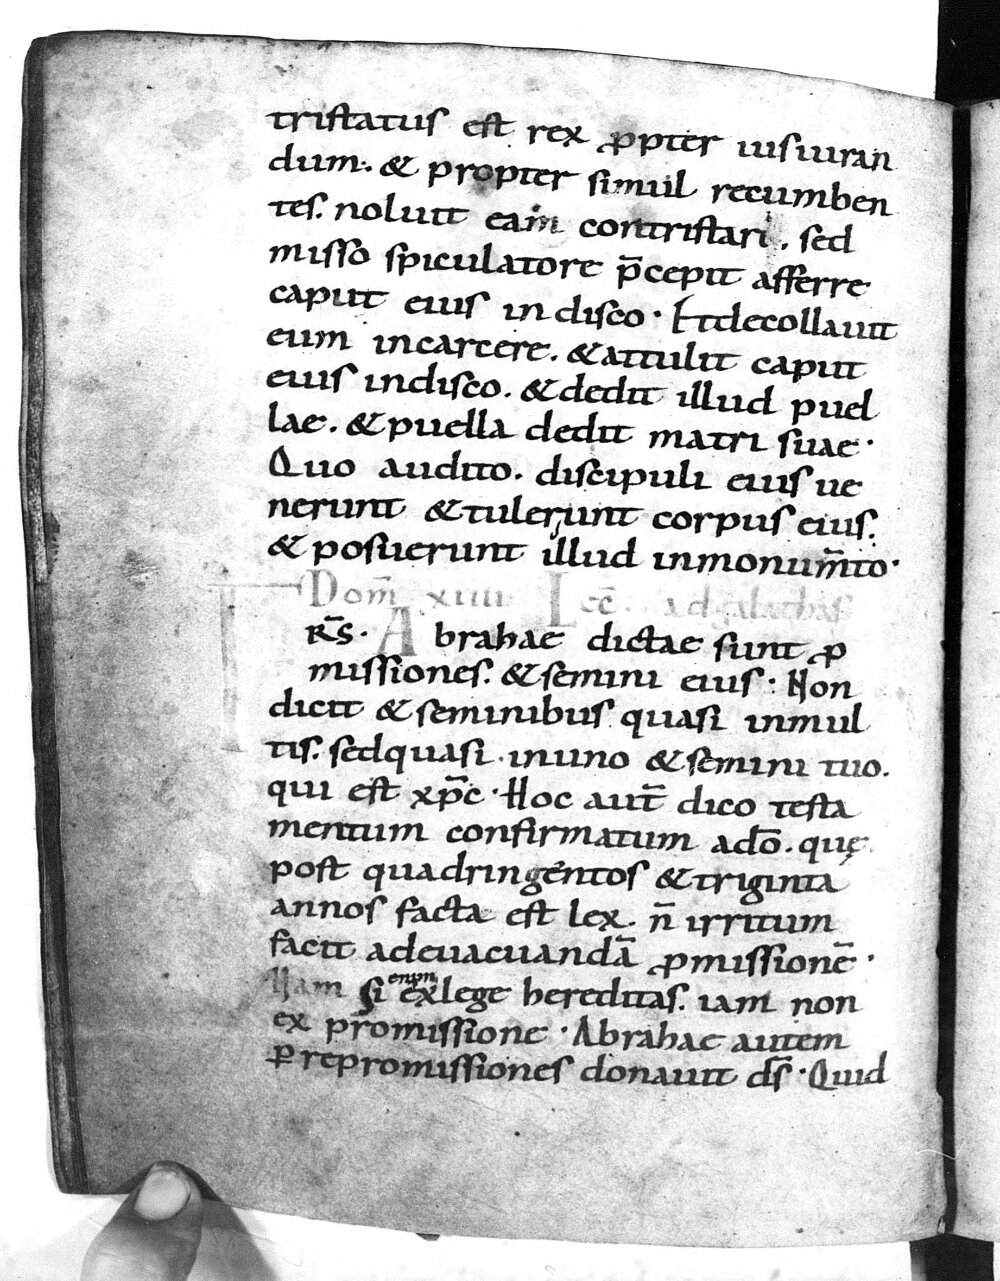 tristatus est rex ꝓpter iusiuran
dum. & propter simul recumben
tes. noluit eam contristari. sed
misso spiculatore p̄cepit afferre
caput eius in disco. Et decollauit
eum incarcere. & attulit caput
eius indisco. & dedit illud puel
lae. & puella dedit matri suae.
Quo audito. discipuli eius ue
nerunt & tulerunt corpus eius.
& posuerunt illud inmonum̄to.
Dom̄ xiiii Lec̄. ad galathas
FR̄S. Abrahae dictae sunt ꝓ
missiones. & semini eius: Non
dicit & seminibus quasi inmul
tis. sed quasi inuno & semini tuo.
qui est xp̄c. Hoc aut̄ dico testa
mentum confirmatum ado̅. quę
post quadringentos & triginta
annos facta est lex. n̄ irritum
facit adeuacuandā ꝓmissionē.
Nam si enim exlege hereditas. iam non
ex promissione. Abrahae autem
ꝑ repromissiones donauit ds̄. Quid